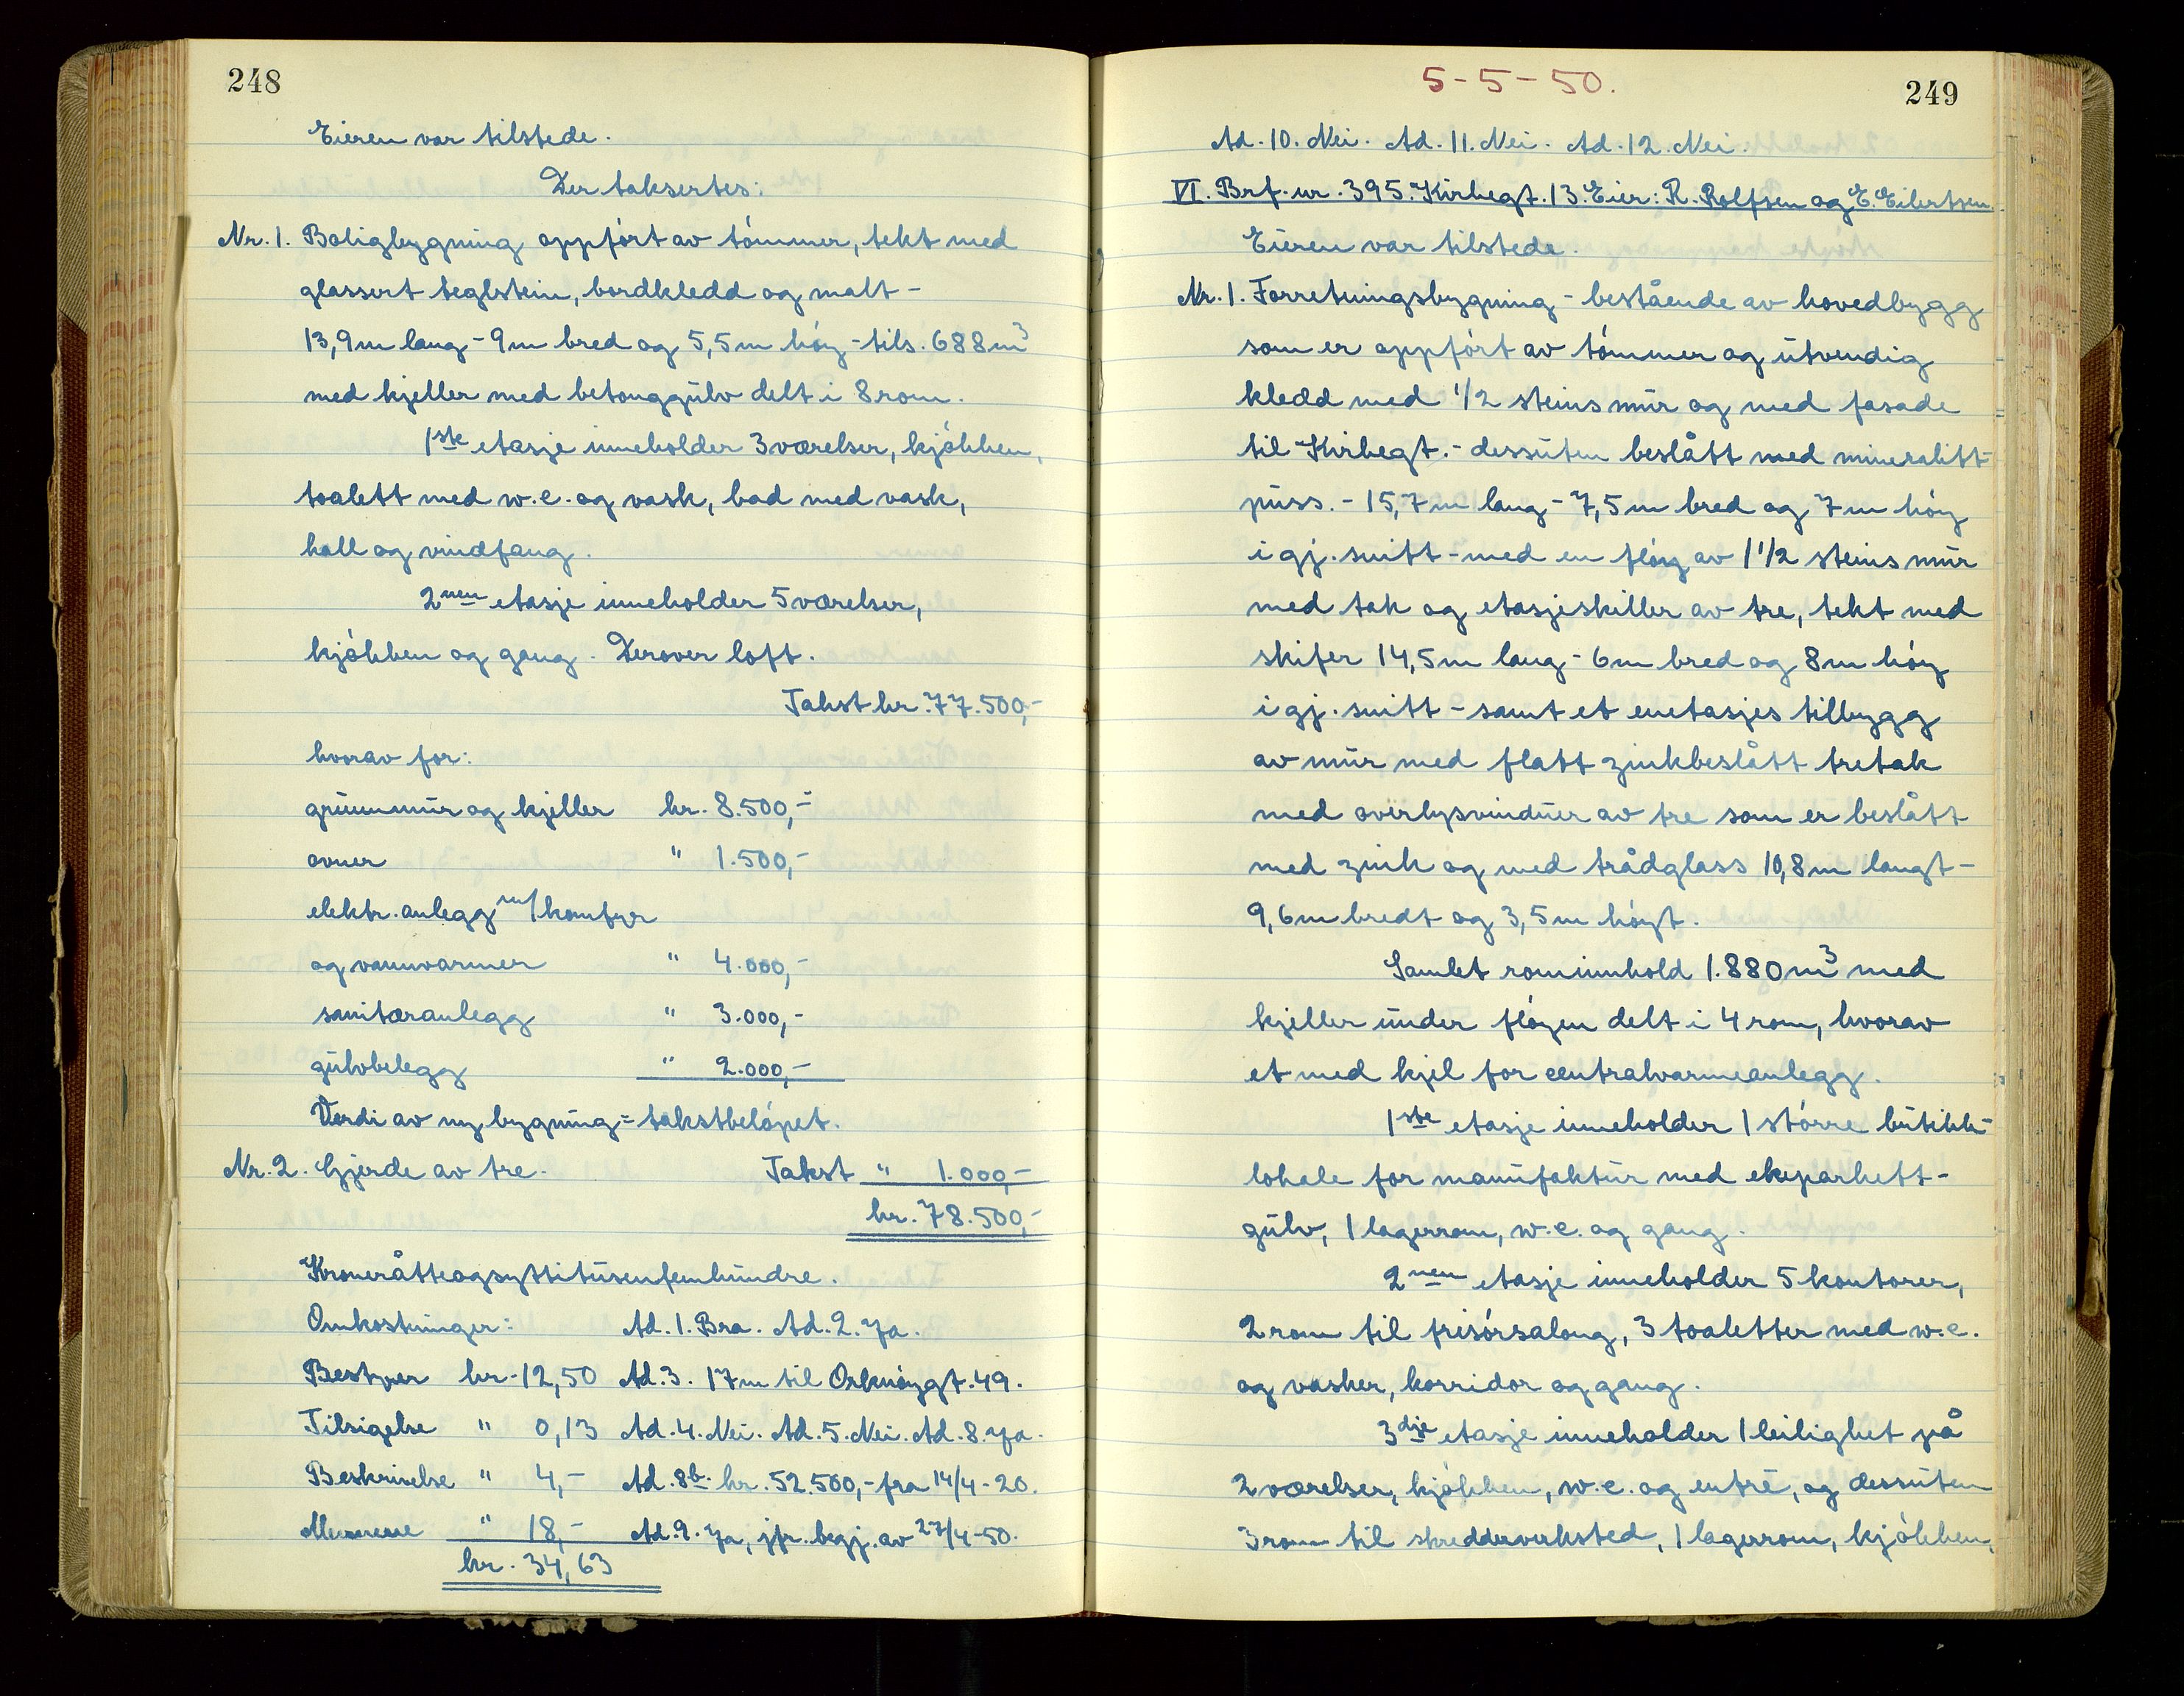 248
Eieren var tilstede.
Der taksertes:
Nr. 1. Boligbygning oppført av tømmer, tekt med
glassert teglstein, bordkledd og malt -
13,9 m lang - 9 m bred og 5,5 m høy - tils. 688 m³
med kjeller med betonggulv delt i 8 rom.
1ste etasje inneholder 3 værelser, kjøkken,
toalett med w.c. og vask, bad med vask,
hall og vindfang.
2nen etasje inneholder 5 værelser,
kjøkken og gang. Derover loft.
Takst kr. 77.500,-
hvorav for:
grunnmur og kjeller kr. 8.500,-
ovner " 1.500,-
elektr. anlegg m/komfyr
og vannvarmer " 4.000,-
sanitæranlegg " 3.000,-
gulvbelegg " 2.000,-
Verdi av ny bygning = takstbeløpet.
Nr. 2. Gjerde av tre. Takst " 1.000,-
kr. 78.500,-
Kroneråtteogsyttitusenfemhundre.
Omkostninger: Ad. 1. Bra. Ad. 2. Ja.
Bestyrer kr. 12,50 Ad. 3. 17 m til Orknøygt. 49.
Tilsigelse " 0,13 Ad. 4. Nei. Ad. 5. Nei. Ad. 8. Ja.
Beskrivelse " 4,- Ad. 8b. kr. 52.500,- fra 14/4-20.
Mennene " 18,- Ad. 9. Ja, jfr. begj. av 27/4-50.
kr. 34,63
5-5-50.
249
Ad. 10. Nei. Ad. 11. Nei. Ad. 12. Nei.
VI. Brf. nr. 395. Kirkegt. 13. Eier: R. Rolfsen og E. Eilertsen.
Eieren var tilstede.
Nr. 1. Forretningsbygning - bestående av hovedbygg
som er oppført av tømmer og utvendig
kledd med 1/2 steins mur og med fasade
til Kirkegt. - dessuten beslått med mineralitt-
puss. - 15,7 m lang - 7,5 m bred og 7 m høy
i gj. snitt - med en fløy av 1 1/2 steins mur
med tak og etasjeskiller av tre, tekt med
skifer 14,5 m lang - 6 m bred og 8 m høy
i gj. snitt - samt et enetasjes tilbygg
av mur med flatt zinkbeslått tretak
med overlysvinduer av tre som er beslått
med zink og med trådglass 10,8 m langt -
9,6 m bredt og 3,5 m høyt.
Samlet rominnhold 1.880 m³ med
kjeller under fløyen delt i 4 rom, hvorav
et med kjel for centralvarmeanlegg.
1ste etasje inneholder 1 større butikk-
lokale for manufaktur med ekeparkett-
gulv, 1 lagerrom, w.c. og gang.
2nen etasje inneholder 5 kontorer,
2 rom til frisørsalong, 3 toaletter med w.c.
og vasker, korridor og gang.
3dje etasje inneholder 1 leilighet på
2 værelser, kjøkken, w.c. og entré, og dessuten
3 rom til skredderverksted, 1 lagerrom, kjøkken,